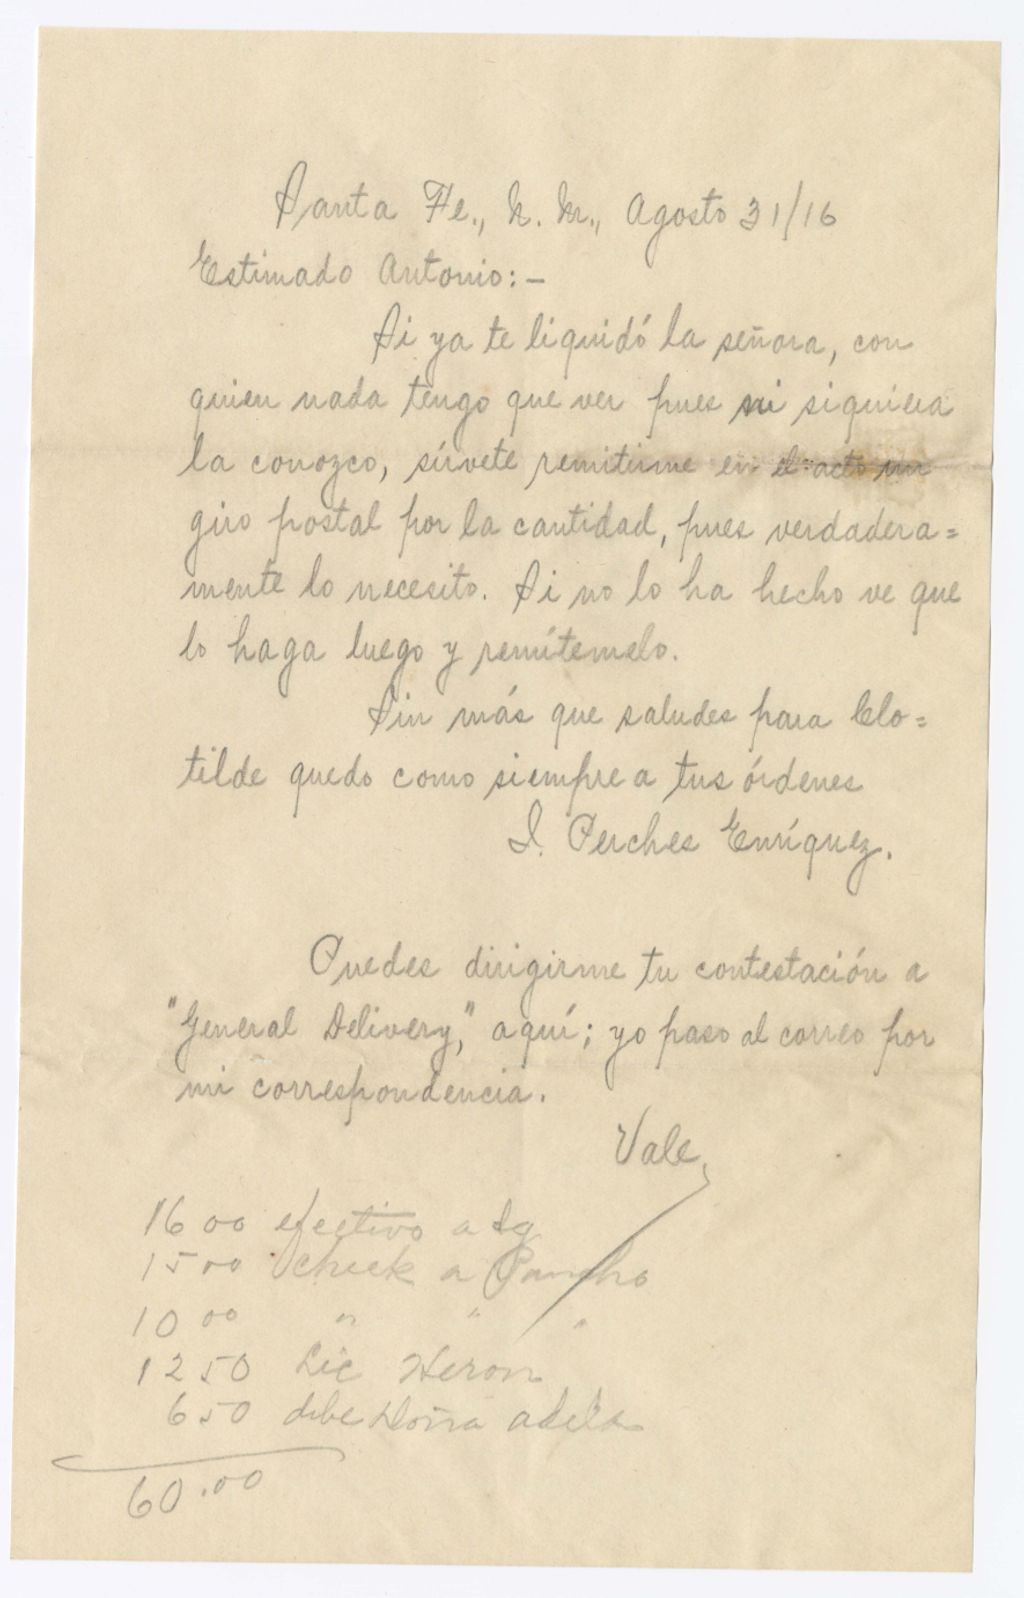 Santa Fe., N. M., Agosto 31/16
Estimado Antonio:-
Si ya te liquidó la señora, con
quien nada tengo que ver pues ni siquiera
la conozco, sírvete remitirme en el acto un
giro postal por la cantidad, pues verdadera=
mente lo necesito. Si no lo ha hecho ve que
lo haga luego y remítemelo.
Sin más que saludes para Clo=
tilde quedo como siempre a tus órdenes
I. Perches Enríquez.
Puedes dirigirme tu contestación a
"General Delivery," aquí; yo paso al correo por
mi correspondencia.
Vale
16 00 efectivo a
15 00 Check a Pancho
10 00 " " "
12 50 Lic Heron
6 50 debe Doña adela
60.00